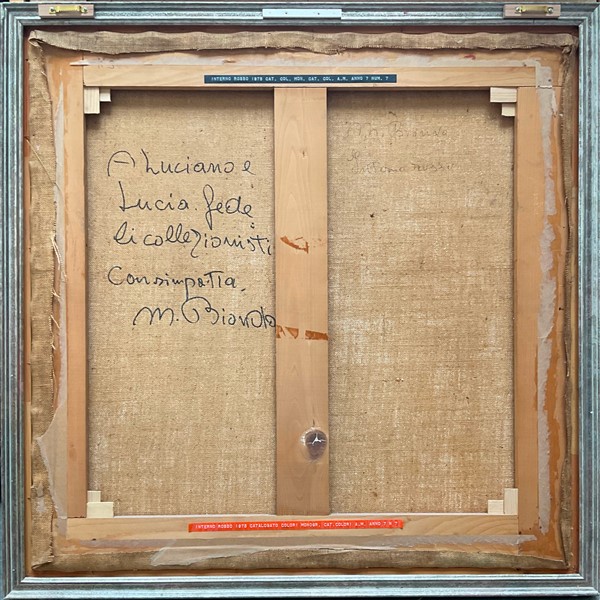 INTERNO ROSSO 1979 CAT. COL. MOR. CAT. COL. A.M. ANNO 7 NUM. 7
A Luciano e
Lucia fede
li collezionisti
Con simpatia.
M.
INTERNO ROSSO 1979 CATALOGATO COLORI MORGER, CAT. COLORI A.M. ANNO 7 N 7